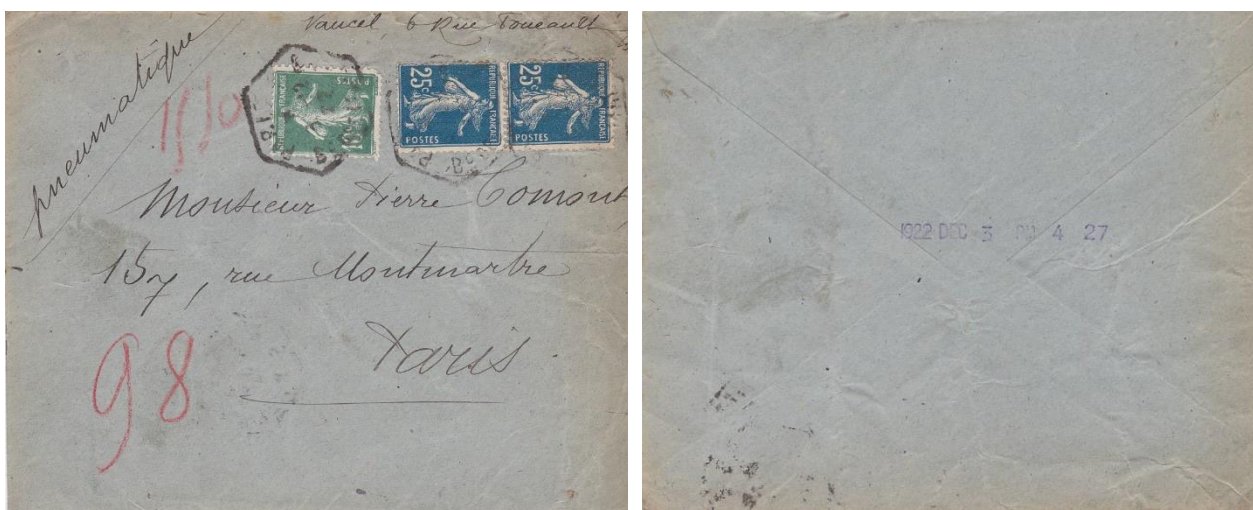 Vaucel, 6 Rue Foucault
pneumatique
25c REPUBLIQUE FRANÇAISE POSTES
25c REPUBLIQUE FRANÇAISE POSTES
POSTES
Monsieur Pierre Comont
157, rue Montmartre
Paris
98
1922 DEC 3 PM 4 27